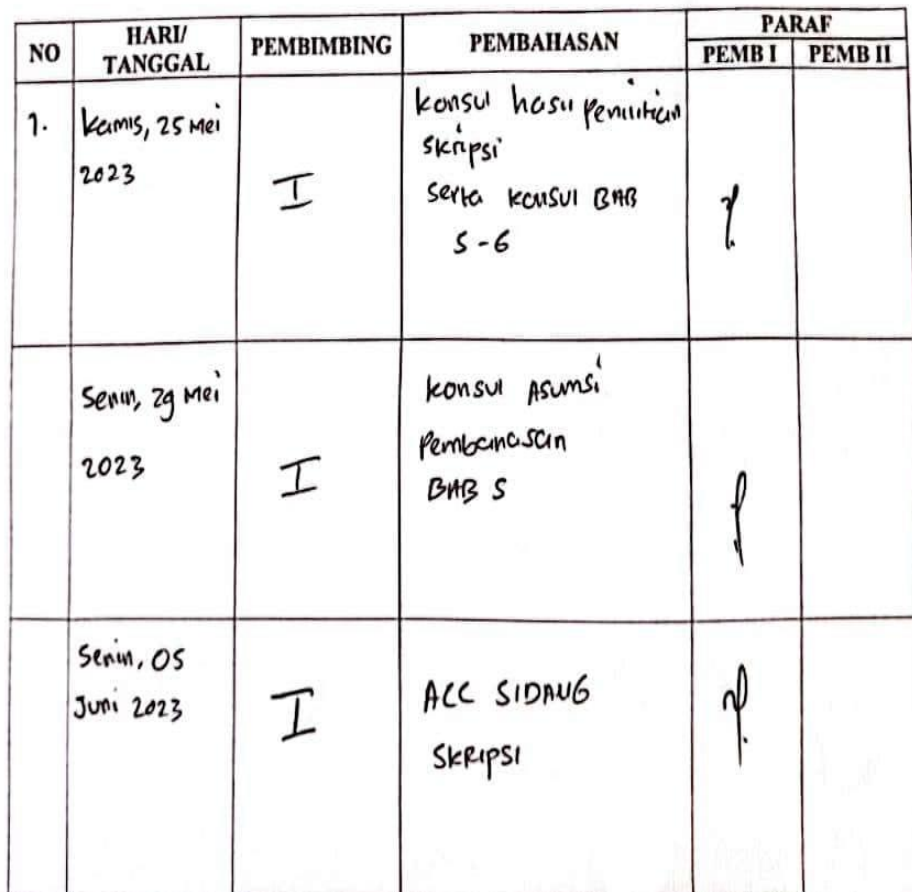 NO HARI/ TANGGAL PEMBIMBING PEMBAHASAN PARAF
PEMB I PEMB II
1. Kamis, 25 Mei
2023
I
konsul hasil penilitian
skripsi
serta konsul BAB
5-6
Senin, 29 Mei
2023
I
konsul Asumsi
Pembahasan
BAB 5
Senin, 05
Juni 2023
I
ACC SIDANG
SKRIPSI